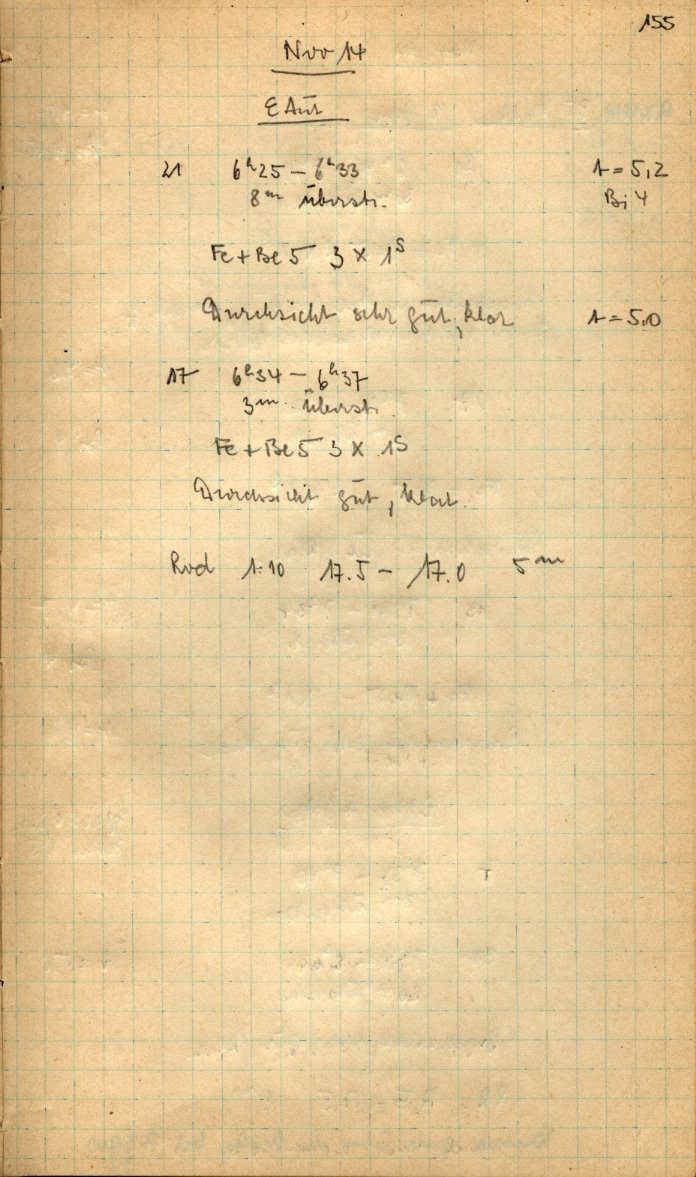 155
Nov 14
ε Aur
21 6ʰ25 – 6ʰ33 A = 5,2
8ᵐ überstr. Bi 4
Fe + Be 5 3 × 1ˢ
Durchsicht sehr gut, klar A = 5,0
17 6ʰ34 – 6ʰ37
3ᵐ überstr.
Fe + Be 5 3 × 1ˢ
Durchsicht gut, klar.
1.10 17.5 – 17.0 5ᵐ